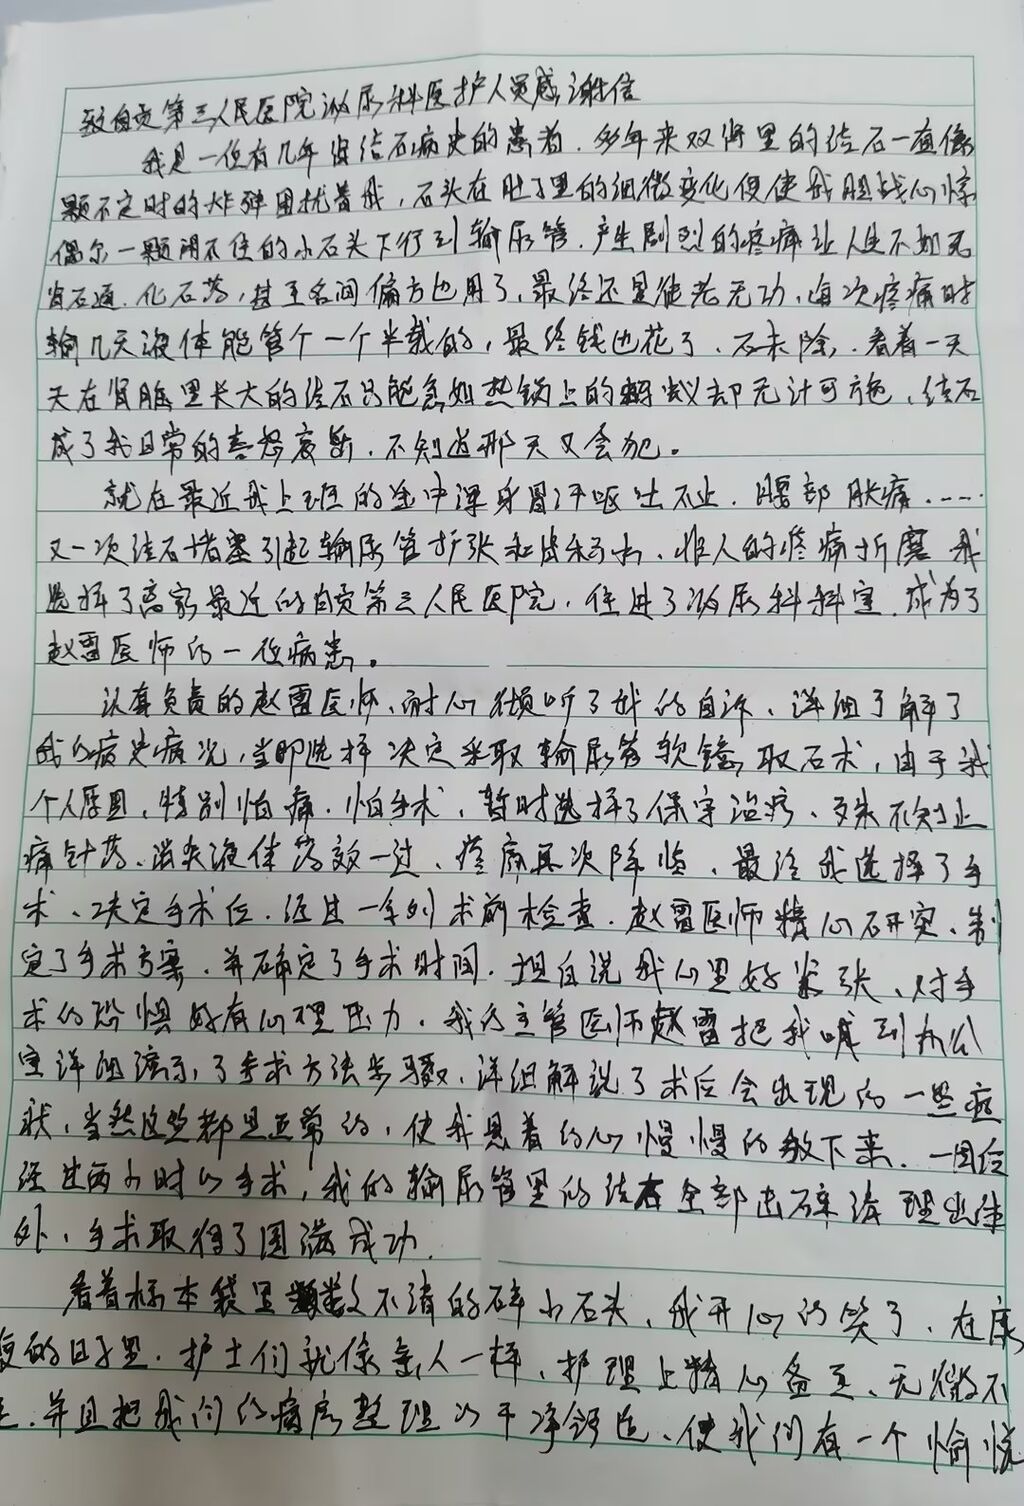 致自贡第三人民医院泌尿科医护人员感谢信
我是一位有几年肾结石病史的患者.多年来双肾里的结石一直像
颗不定时的炸弹困扰着我,石头在肚子里的细微变化便使我胆战心惊
偶尔一颗闹不住的小石头下行到输尿管.产生剧烈的疼痛让人生不如死
肾石通.化石药,甚至名间偏方也用了,最终还是徒劳无功,每次疼痛时
输几天液体能管个一个半载的,最终钱也花了.石未除,看着一天
天在肾脏里长大的结石只能急如热锅上的蚂蚁却无计可施,结石
成了我日常的喜怒哀乐.不知道那天又会犯。
就在最近我上班的途中浑身冒汗呕吐不止.腰部胀痛.....
又一次结石堵塞引起输尿管扩张和积水.恼人的疼痛折磨我
选择了离家最近的自贡第三人民医院,住进了泌尿科科室.成为了
赵雷医师的一位病患。
认真负责的赵雷医师,耐心倾听了我的自诉、详细了解了
我的病史病况,当即选择决定采取输尿管软镜取石术,由于我
个人原因,特别怕痛.怕手术,暂时选择了保守治疗、殊不知止
痛针药、消炎液体药效一过、疼痛再次降临,最终我选择了手
术、决定手术后.经过一系列术前检查.赵雷医师精心研究、制
定了手术方案.并确定了手术时间.坦白说我心里好紧张、对手
术的恐惧好有心理压力.我的主管医师赵雷把我喊到办公
室详细演示了手术方法步骤.详细解说了术后会出现的一些症
状,当然这些都是正常的,使我悬着的心慢慢的放下来.一周后
经过两小时的手术,我的输尿管里的结石全部击碎清理出体
外,手术取得了圆满成功.
看着标本袋里数不清的碎小石头,我开心的笑了.在康
复的日子里.护士们就像亲人一样,护理上精心备至、无微不
至.并且把我们的病房整理的干净舒适、使我们有一个愉悦